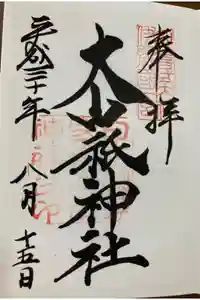 奉拝
大山祇神社
平成三十年八月
十五日